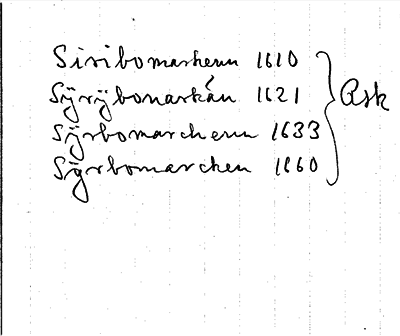 Siribomarkenn 1610
Sÿrÿbonarkán 1621
Sÿrbomarchenn 1633
Sÿrbomarchen 1660
Ask